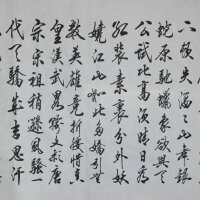 頓失滔滔山舞銀
蛇原馳蠟象欲與天
公試比高須晴日看
紅裝素裹分外妖
嬈江山如此多嬌引無
數英雄競折腰惜秦
皇漢武略輸文彩唐
宗宋祖稍遜風騷一
代天驕成吉思汗